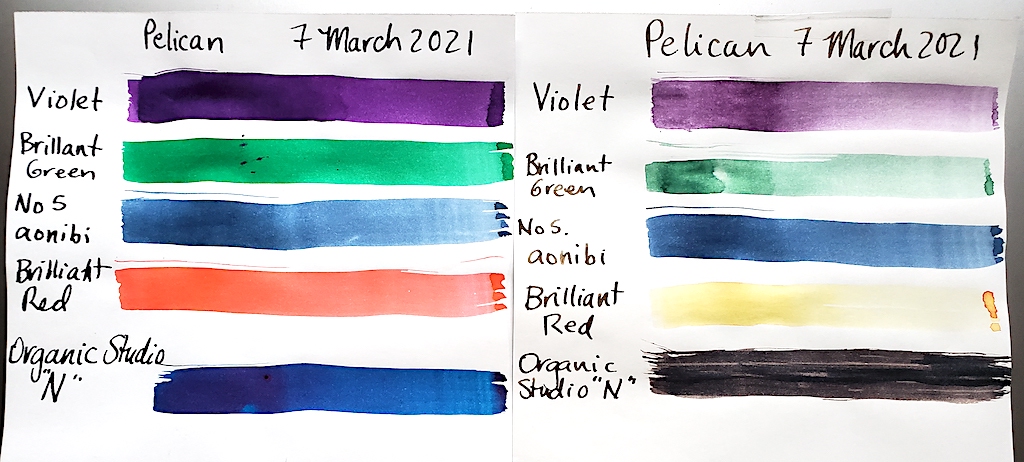 Pelican 7 March 2021
Violet
Brillant
Green
No 5
aonibi
Brilliant
Red
Organic Studio
"N"
Pelican 7 March 2021
Violet
Brilliant
Green
No 5.
aonibi
Brilliant
Red
Organic
Studio "N"